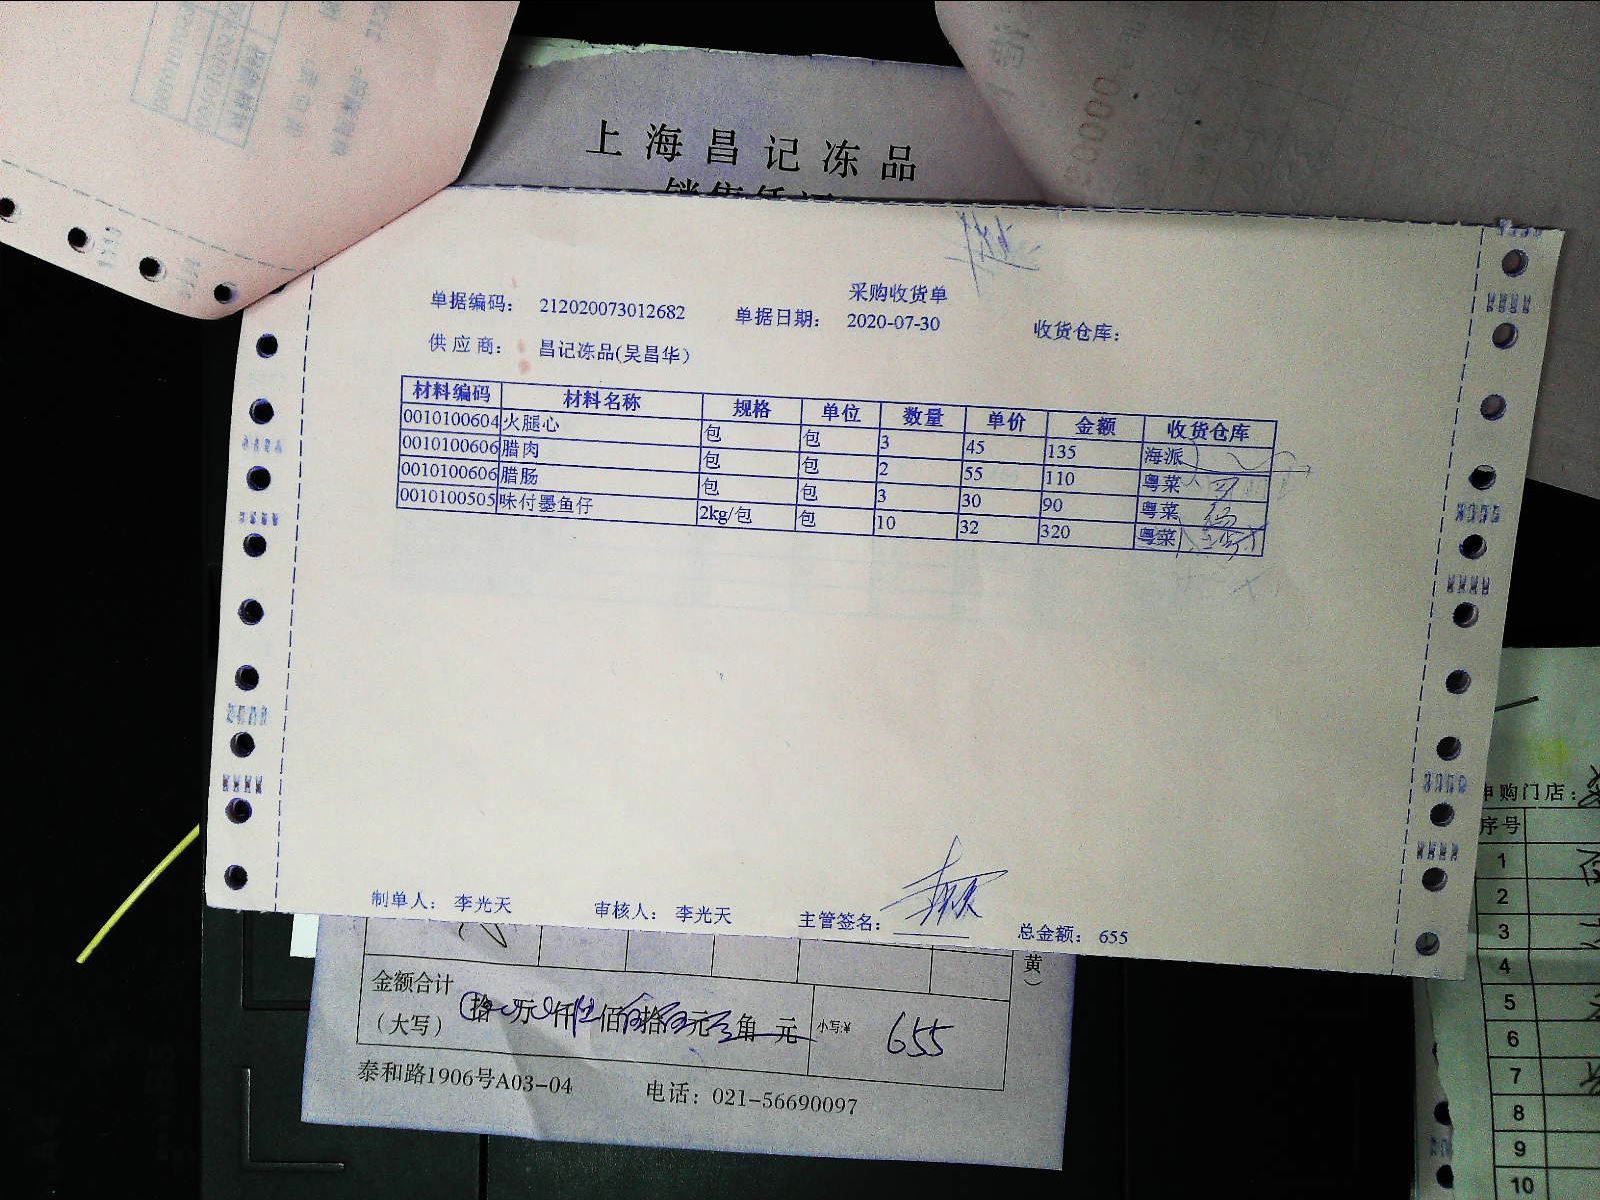 上海昌记冻品
采购收货单
单据编码： 212020073012682 单据日期： 2020-07-30 收货仓库：
供应商： 昌记冻品(吴昌华)
材料编码 材料名称 规格 单位 数量 单价 金额 收货仓库
0010100604 火腿心 包 包 3 45 135 海派
0010100606 腊肉 包 包 2 55 110 粤菜
0010100606 腊肠 包 包 3 30 90 粤菜
0010100505 味付墨鱼仔 2kg/包 包 10 32 320 粤菜
制单人： 李光天 审核人： 李光天 主管签名： 总金额： 655
黄）
金额合计
（大写） 拾 万 仟 佰 拾 元 角 元 小写:¥ 655
泰和路1906号A03-04 电话：021-56690097
申购门店：
序号
1
2
3
4
5
6
7
8
9
10